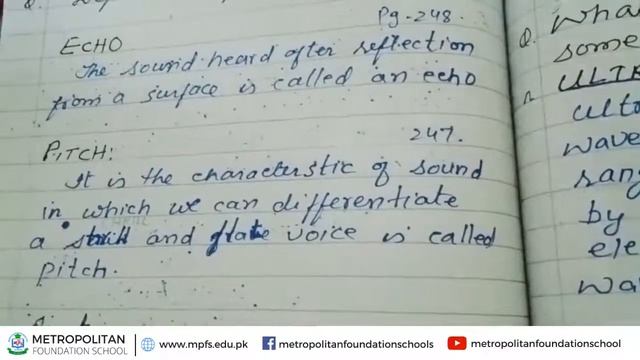 Pg-248.
ECHO
The sound heard after reflection
from a surface is called an echo
247.
PITCH:
It is the characterstic of sound
in which we can differentiate
a and voice is called
pitch.
Q. Wha
some
ULTR
ulto
wave
rang
by
ele
wa
METROPOLITAN
FOUNDATION SCHOOL
www.mpfs.edu.pk
metropolitanfoundationschools
metropolitanfoundationschool